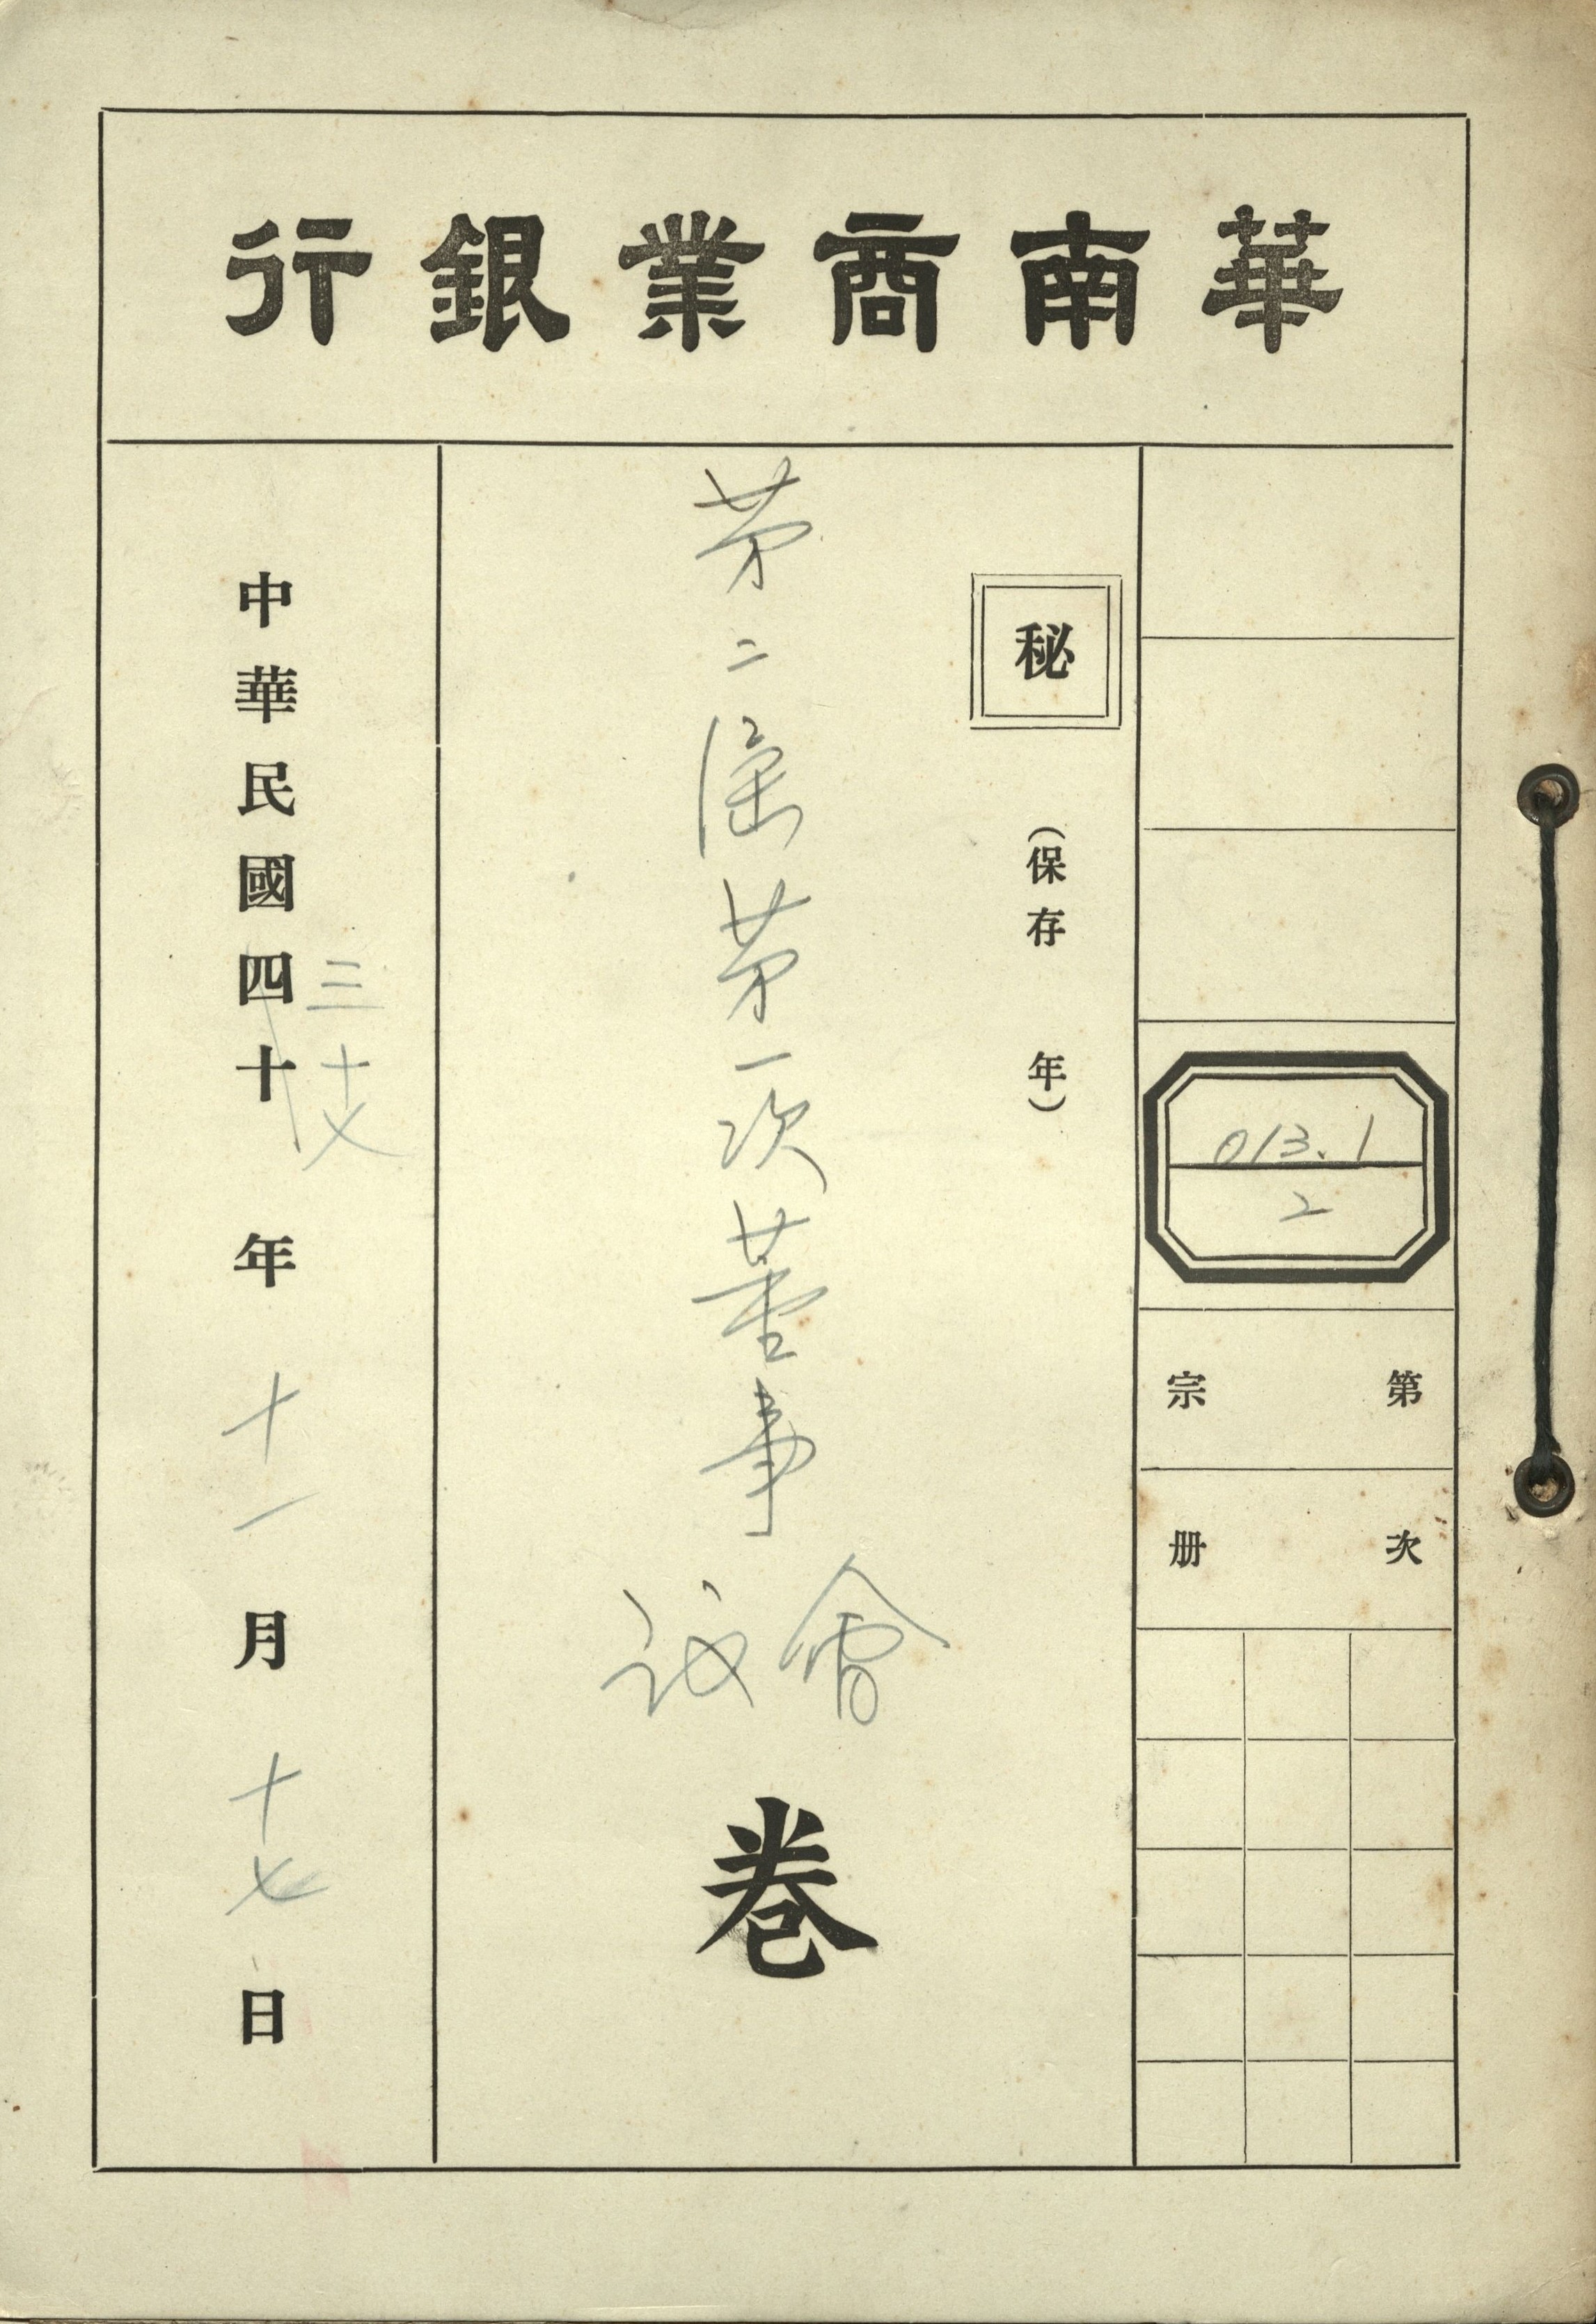 華南商業銀行
013.1
2
第宗
次冊
秘
(保存 年)
第二屆第一次董事會議卷
中華民國四十年十一月十七日
三十七